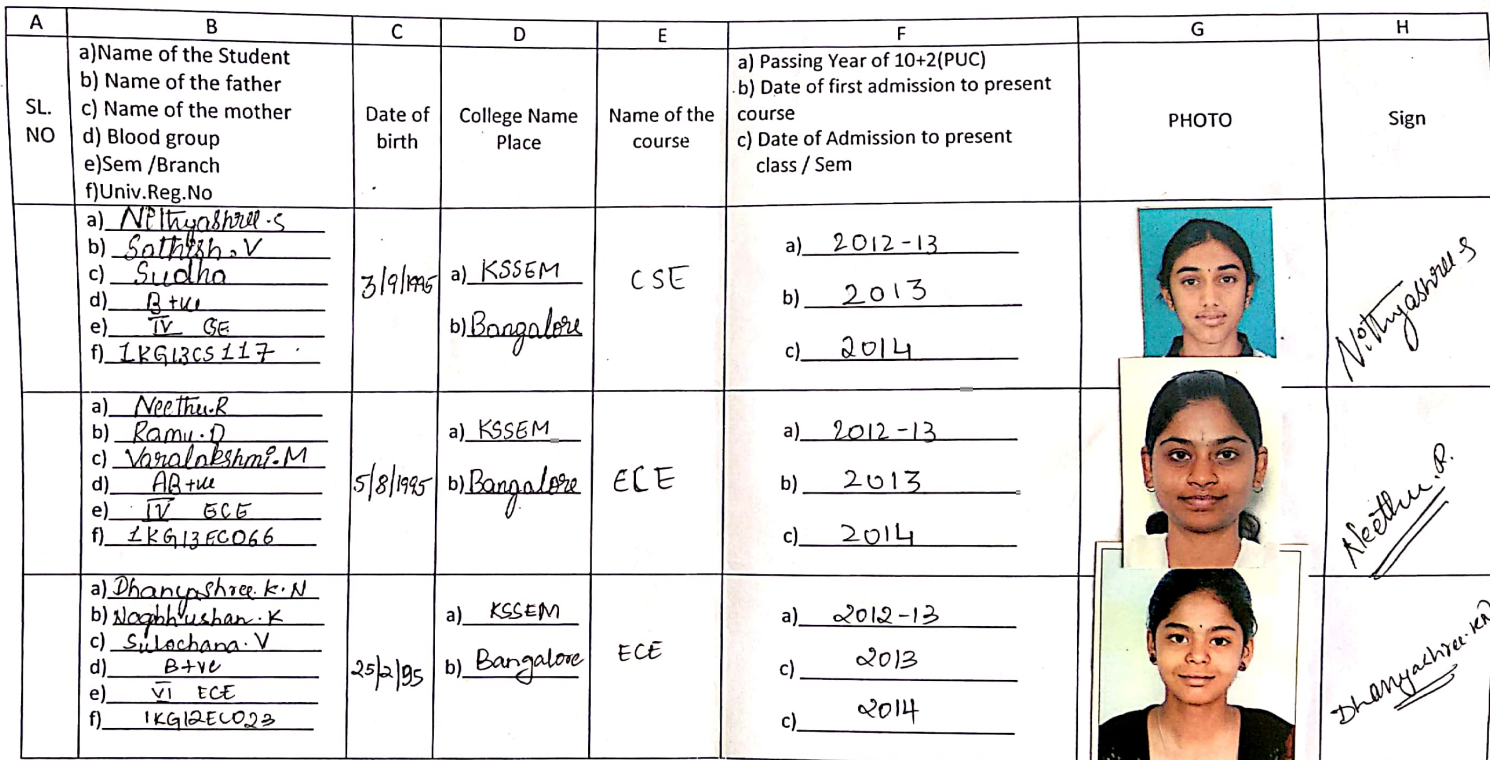 A B C D E F G H
SL. NO
a)Name of the Student
b) Name of the father
c) Name of the mother
d) Blood group
e)Sem /Branch
f)Univ.Reg.No
Date of birth
College Name Place
Name of the course
a) Passing Year of 10+2(PUC)
b) Date of first admission to present
course
c) Date of Admission to present
class / Sem
PHOTO
Sign
a) Nithyashree.S
b) Sathish.V
c) Sudha
d) B+ve
e) IV CSE
f) 1KG13CS117
3/9/1995
a) KSSEM
b) Bangalore
CSE
a) 2012-13
b) 2013
c) 2014
Nithyashree S
a) Neethu.R
b) Ramu.D
c) Varalakshmi.M
d) AB+ve
e) IV ECE
f) 1KG13EC066
5/8/1995
a) KSSEM
b) Bangalore
ECE
a) 2012-13
b) 2013
c) 2014
Neethu.R.
a) Dhanyashree.K.N
b) Nagbhushan.K
c) Sulochana.V
d) B+ve
e) VI ECE
f) 1KG12EC023
25/2/95
a) KSSEM
b) Bangalore
ECE
a) 2012-13
c) 2013
c) 2014
Dhanyashree.KN